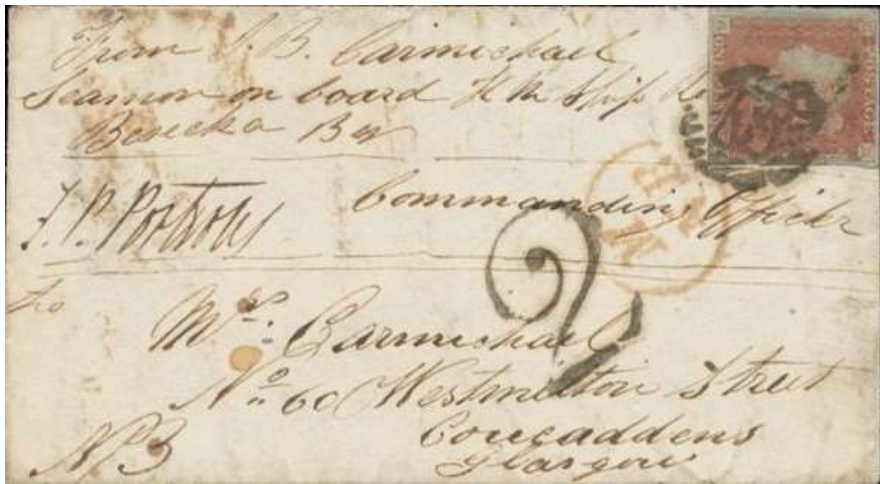 From J. B. Carmichael
Seaman on board H M Ship
Beseeka Bay
Commanding Officer
to
Mrs. Carmichael
No. 60 Westmilton Street
Coucaddens
Glasgow
2